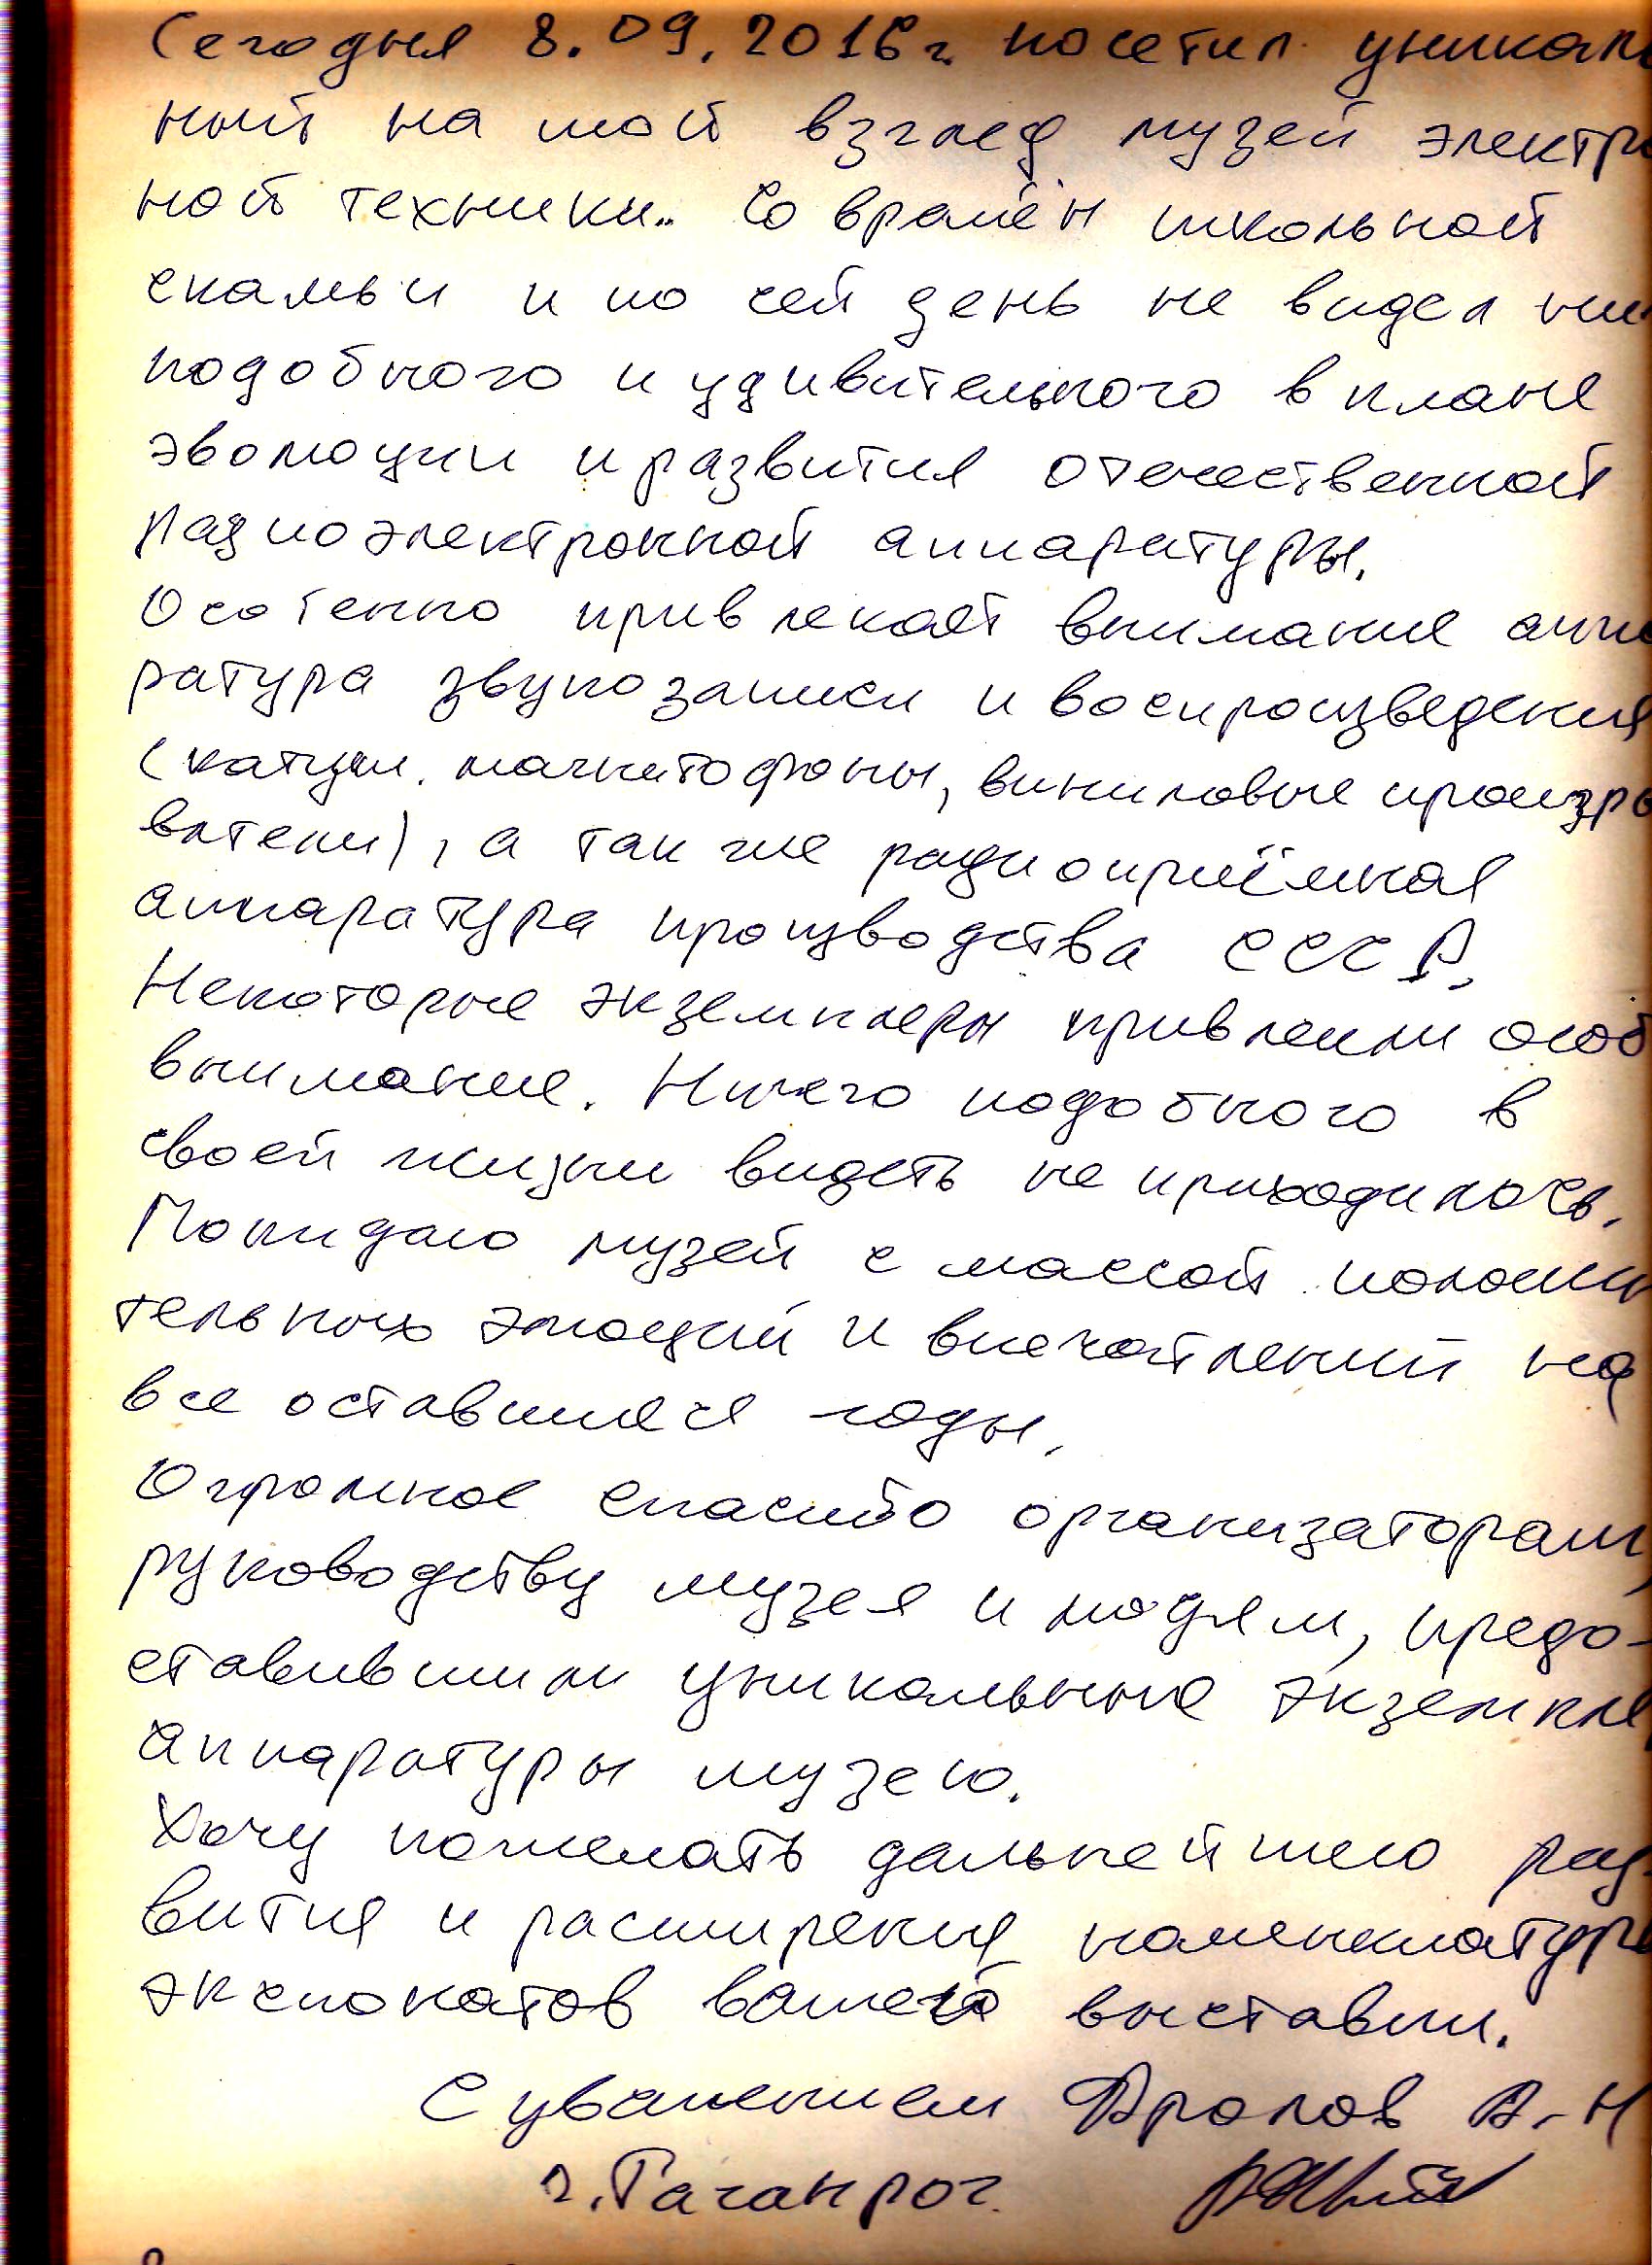 Сегодня 8.09.2016г. посетил уникаль
ный на мой взгляд музей электро
ной техники. Со времён школьной
скамьи и по сей день не видел ни
подобного и удивительного в плане
эволюции и развития отечественной
радиоэлектронной аппаратуры.
Особенно привлекает внимание аппа
ратура звукозаписи и воспроизведения
(катуш. магнитофоны, виниловые проигры
ватели), а так же радиоприёмная
аппаратура производства СССР.
Некоторые экземпляры привлекли особ
внимание. Ничего подобного в
своей жизни видеть не приходилось.
Покидаю музей с массой положи
тельных эмоций и впечатлений на
все оставшиеся годы.
Огромное спасибо организаторам,
руководству музея и людям, предо-
ставившим уникальные экземпля
аппаратуры музею.
Хочу пожелать дальнейшего раз-
вития и расширения номенклатуры
экспонатов вашей выставки.
С уважением Фролов А.Н
г. Таганрог.